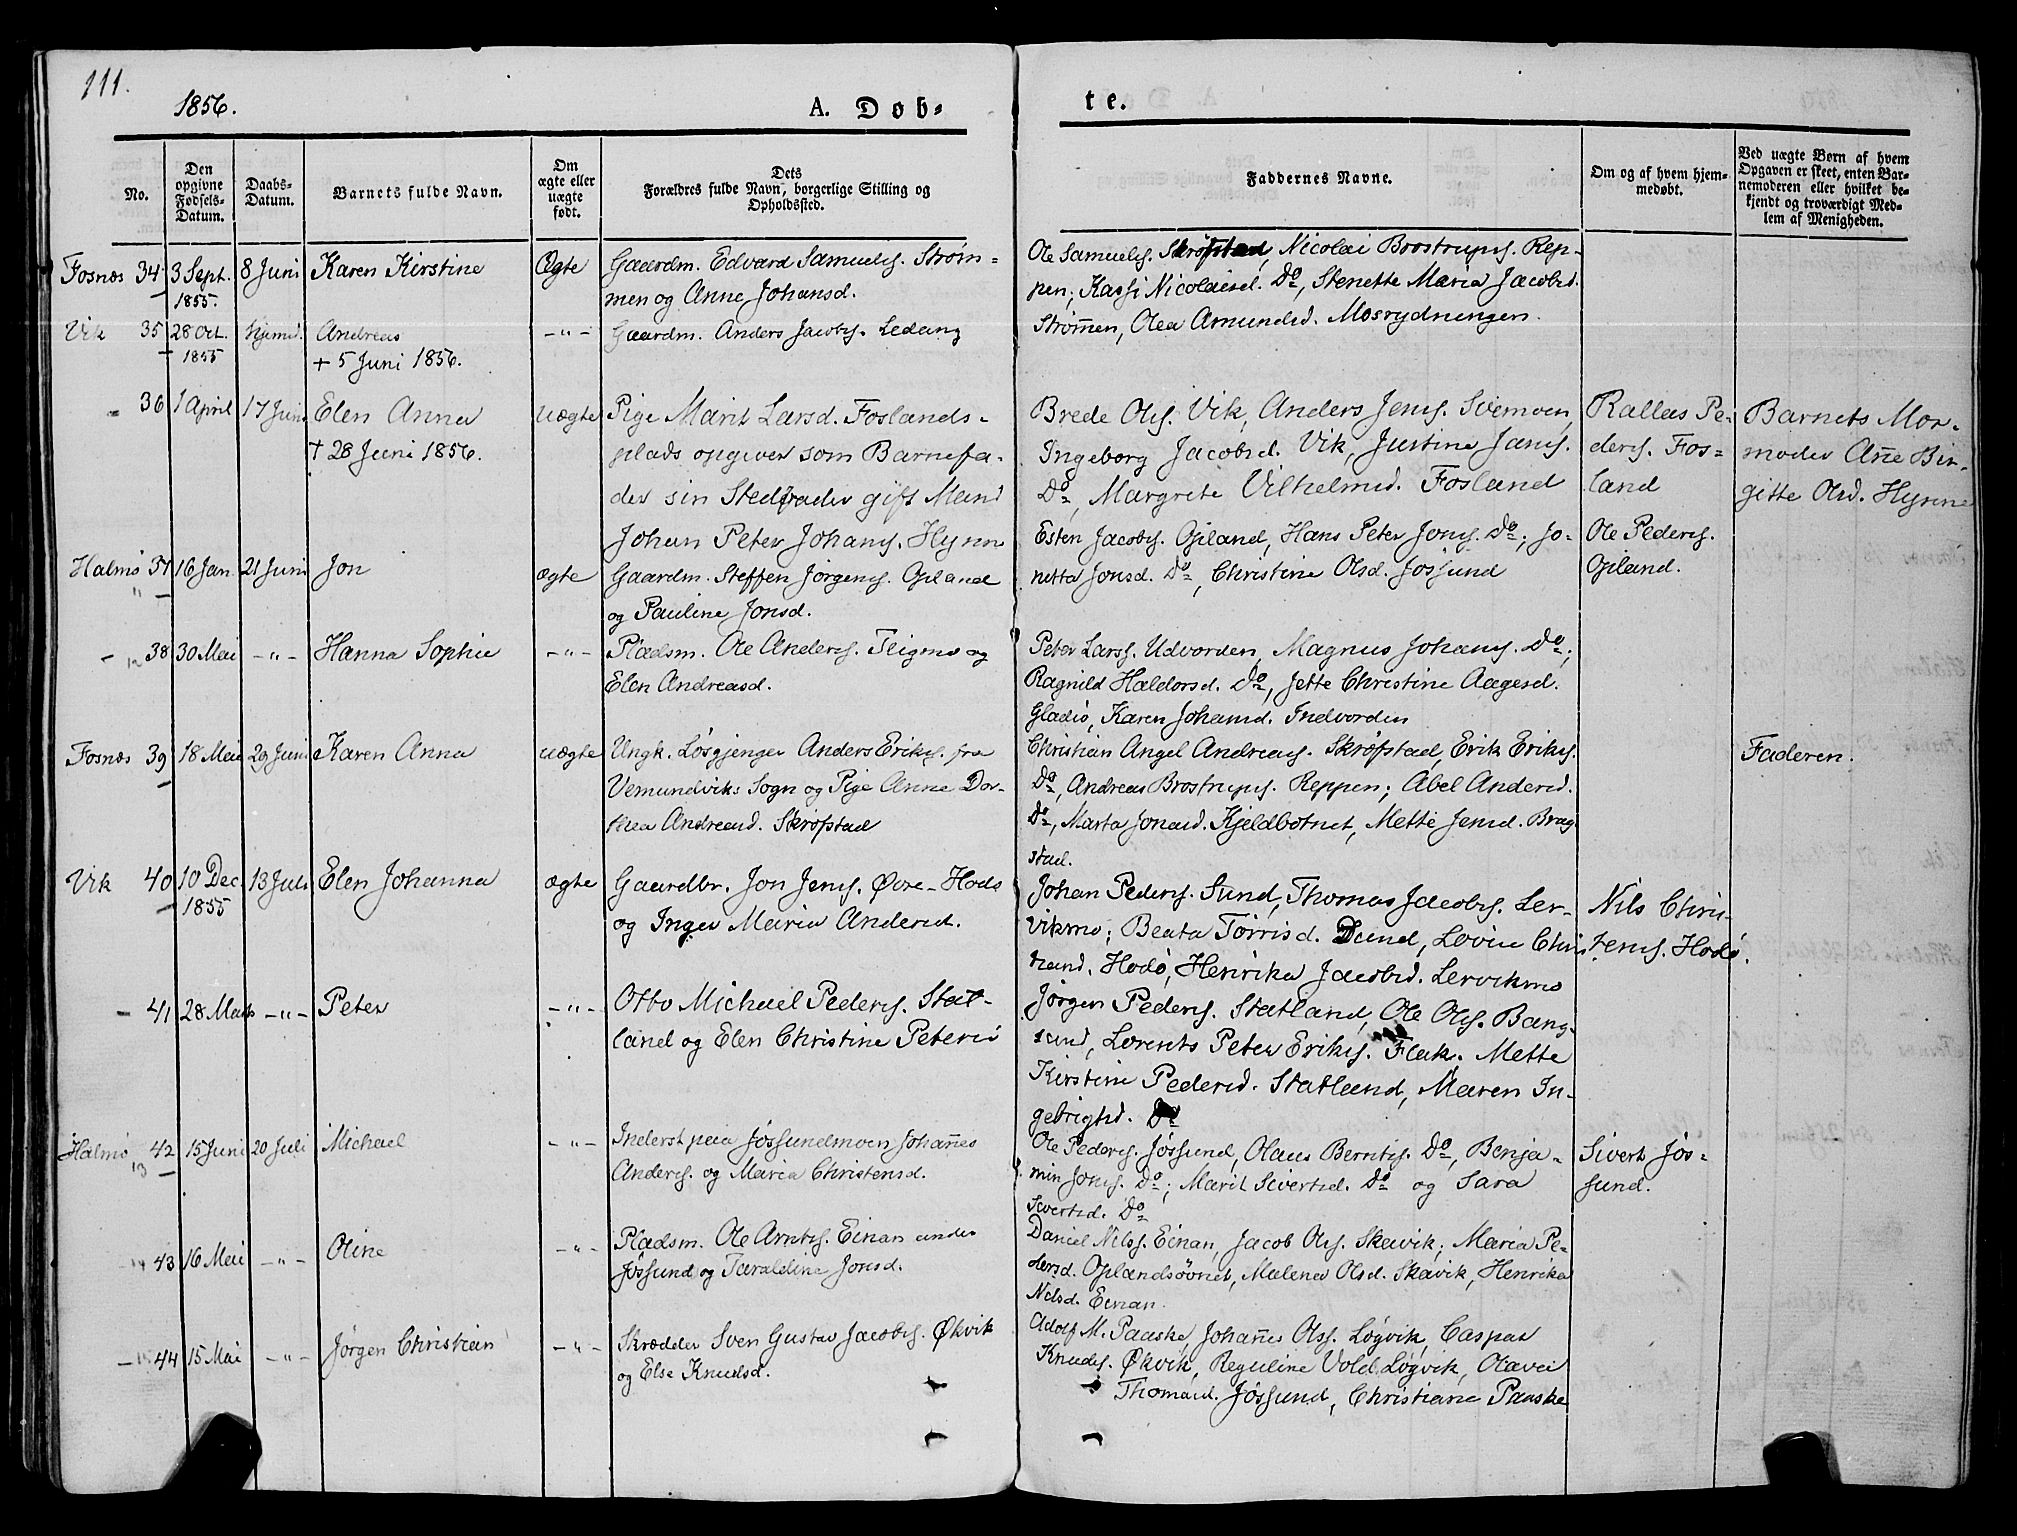 111.
1856.
A. Døb-
te.
No.
Den opgivne Fødsels-Datum.
Daabs-Datum.
Barnets fulde Navn.
Om ægte eller uægte født.
Dets
Forældres fulde Navn, borgerlige Stilling og
Opholdssted.
Faddernes Navne.
Om og af hvem hjem-
medøbt.
Ved uægte Børn af hvem
Opgaven er skeet, enten Bar-
nemoderen eller hvilket be-
kjendt og troværdigt Med-
lem af Menigheden.
Fosnæs 34 3 Sept. 1855. 8 Juni Karen Kirstine Ægte
Gaardm. Edvard Samuels. Strøm-
men og Anne Johansd.
Ole Samuels. Skrøfstad, Nicolai Brostrups. Rep-
pen; Kassi Nicolaisd. Do, Stenette Maria Jacobsd.
Strømen, Olea Amundsd. Mosrydningen.
Vik 35 28 Oct. 1855 hjemd. Andreas -"-
+ 5 Juni 1856.
Gaardm. Anders Jacobs. Ledang
- 36 1 April 17 Juni Elen Anna uægte
† 28 Juni 1856.
Pige Marit Larsd. Foslands-
plads opgiver som Barnefa-
der sin Stedfader gift Mand
Johan Peter Johans. Hynne
Brede Ols. Vik, Anders Jens. Svemoen,
Ingeborg Jacobsd. Vik, Justine Jans.
Do, Margrete Vilhelmsd. Fosland
Rallas Pe-
ders. Fos-
land
Barnets Mor-
moder Ane Bir-
gitte Olsd. Hynne
Halmø 37 16 Jan 21 Juni Jon ægte
Gaardm. Steffen Jørgens. Opland
og Pauline Jonsd.
Esten Jacobs. Opland, Hans Peter Jons. Do; Jo-
netta Jonsd. Do, Christine Olsd. Jøssund
Ole Peders.
Opland.
- 12 38 30 Mai -"- Hanna Sophie -"-
Pladsm. Ole Anders. Teigmo og
Elen Andreasd.
Peter Larss. Udvorden, Magnus Johans. Do;
Ragnild Haldorsd. Do, Jette Christine Aagesd.
Gladsø, Karen Johansd. Indvorden
Fosnæs 39 18 Mai 29 Juni Karen Anna uægte
Ungk. Løsgjenger Anders Eriks. fra
Vemundviks Sogn og Pige Anne Dor-
thea Andreasd. Skrøfstad
Christian Angel Andreas. Skrøfstad, Erik Eriks.
Do, Andreas Brostrups. Reppen; Abel Andersd.
Do, Marta Jonasd. Kjeldbotnet, Mette Jensd. Brag-
stad.
Faderen.
Vik 40 10 Dec. 1855 13 Juli Elen Johanna ægte
Gaardbr. Jon Jens. Øvre-Hodø
og Inger Maria Andersd.
Johan Peders. Sund, Thomas Jacobs. Ler-
vikmo; Beata Tørrisd. Sund, Lovise Chris
tiand. Hodø, Henrika Jacobsd. Lervikmo
Nils Chris-
tens. Hodø.
- 41 28 Marts -"- Peter -"-
Otto Michael Peders. Stat-
land og Elen Christine Petersd
Jørgen Peders. Statland, Ole Ols. Bang-
sund, Lorents Peter Eriks. Flak. Mette
Kirstine Pedersd. Statland, Maren In-
gebrigtsd. Do
Halmø 13 42 15 Juni 20 Juli Michael -"-
Inderst paa Jøssundmoen Johanes
Anders. og Maria Christensd.
Ole Peders. Jøssund, Olaus Bernts. Do, Benja-
min Jons. Do; Marit Sivertsd. Do og Sara
Sivertsd. Do
Sivert Jøs-
sund.
14 43 16 Mai -"- Oline -"-
Pladsm. Ole Arnts. Einan under
Jøssund og Taraldine Jonsd.
Daniel Nilss. Einan, Jacob Ols. Skavik; Maria Pe-
dersd. Oplandsøvnet, Malena Olsd. Skavik, Henrika
Nilsd. Einan.
- 15 44 15 Mai -"- Jørgen Christian -"-
Skrædder Sven Gustav Jacobs. Økvik
og Else Knudsd.
Adolf M. Paaske, Johanes Olss. Løgvik, Caspar
Knuds. Økvik, Reguline Vold Løgvik, Olava
Thomasd. Jøssund, Christiane Paaske